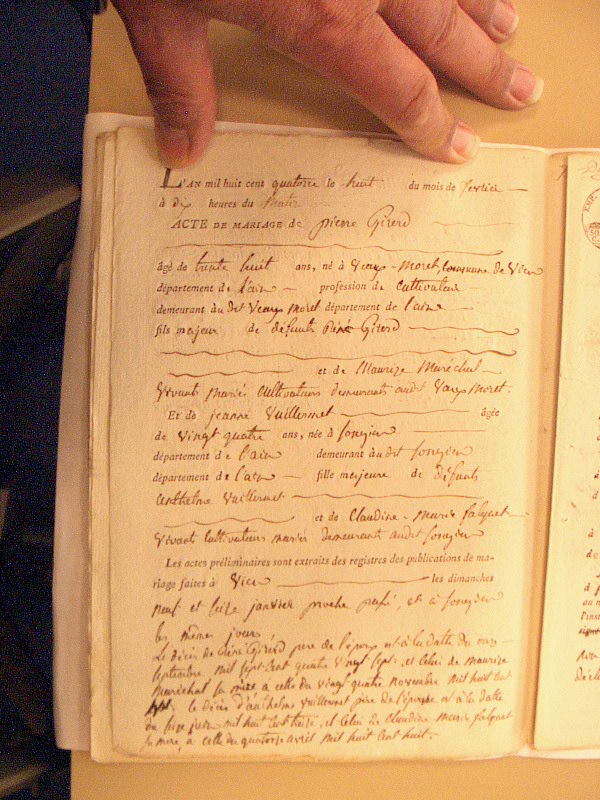 L'AN mil huit cent quatorze le huit du mois de fevrier
à dix heures du Matin
ACTE DE MARIAGE de pierre Girerd
âgé de trente huit ans, né à Vongs-Moret, Commune de Vieu
département de l'ain profession de Cultivateur
demeurant audit Vongs Moret département de l'ain
fils majeur de défunts René Girerd
et de Maurize Maréchal
Vivants mariés Cultivateurs demeurants audit Vongs Moret.
Et de jeanne Vuillermet âgée
de vingt quatre ans, née à Songieu
département de l'ain demeurant audit Songieu
département de l'ain fille majeure de défunts
anthelme Vuillermet
et de Claudine-Marie
Vivant Cultivateurs mariés demeurants audit Songieu
Les actes préliminaires sont extraits des registres des publications de ma-
riage faites à Vieu les dimanches
neuf et seize janvier proche passé, et à Songieu
les mêmes jours,
Le décès de René Girerd pere de l'époux est à la datte du onze
septembre mil sept cent quatre vingt sept, et celui de maurize
maréchal sa mère à celle du vingt quatre novembre mil huit cent
le décès d'anthelme Vuillermet père de l'épouse est à la datte
du seize juin mil huit cent treize, et celui de Claudine Marie
sa mere, à celle du quatorze avril mil huit cent huit.